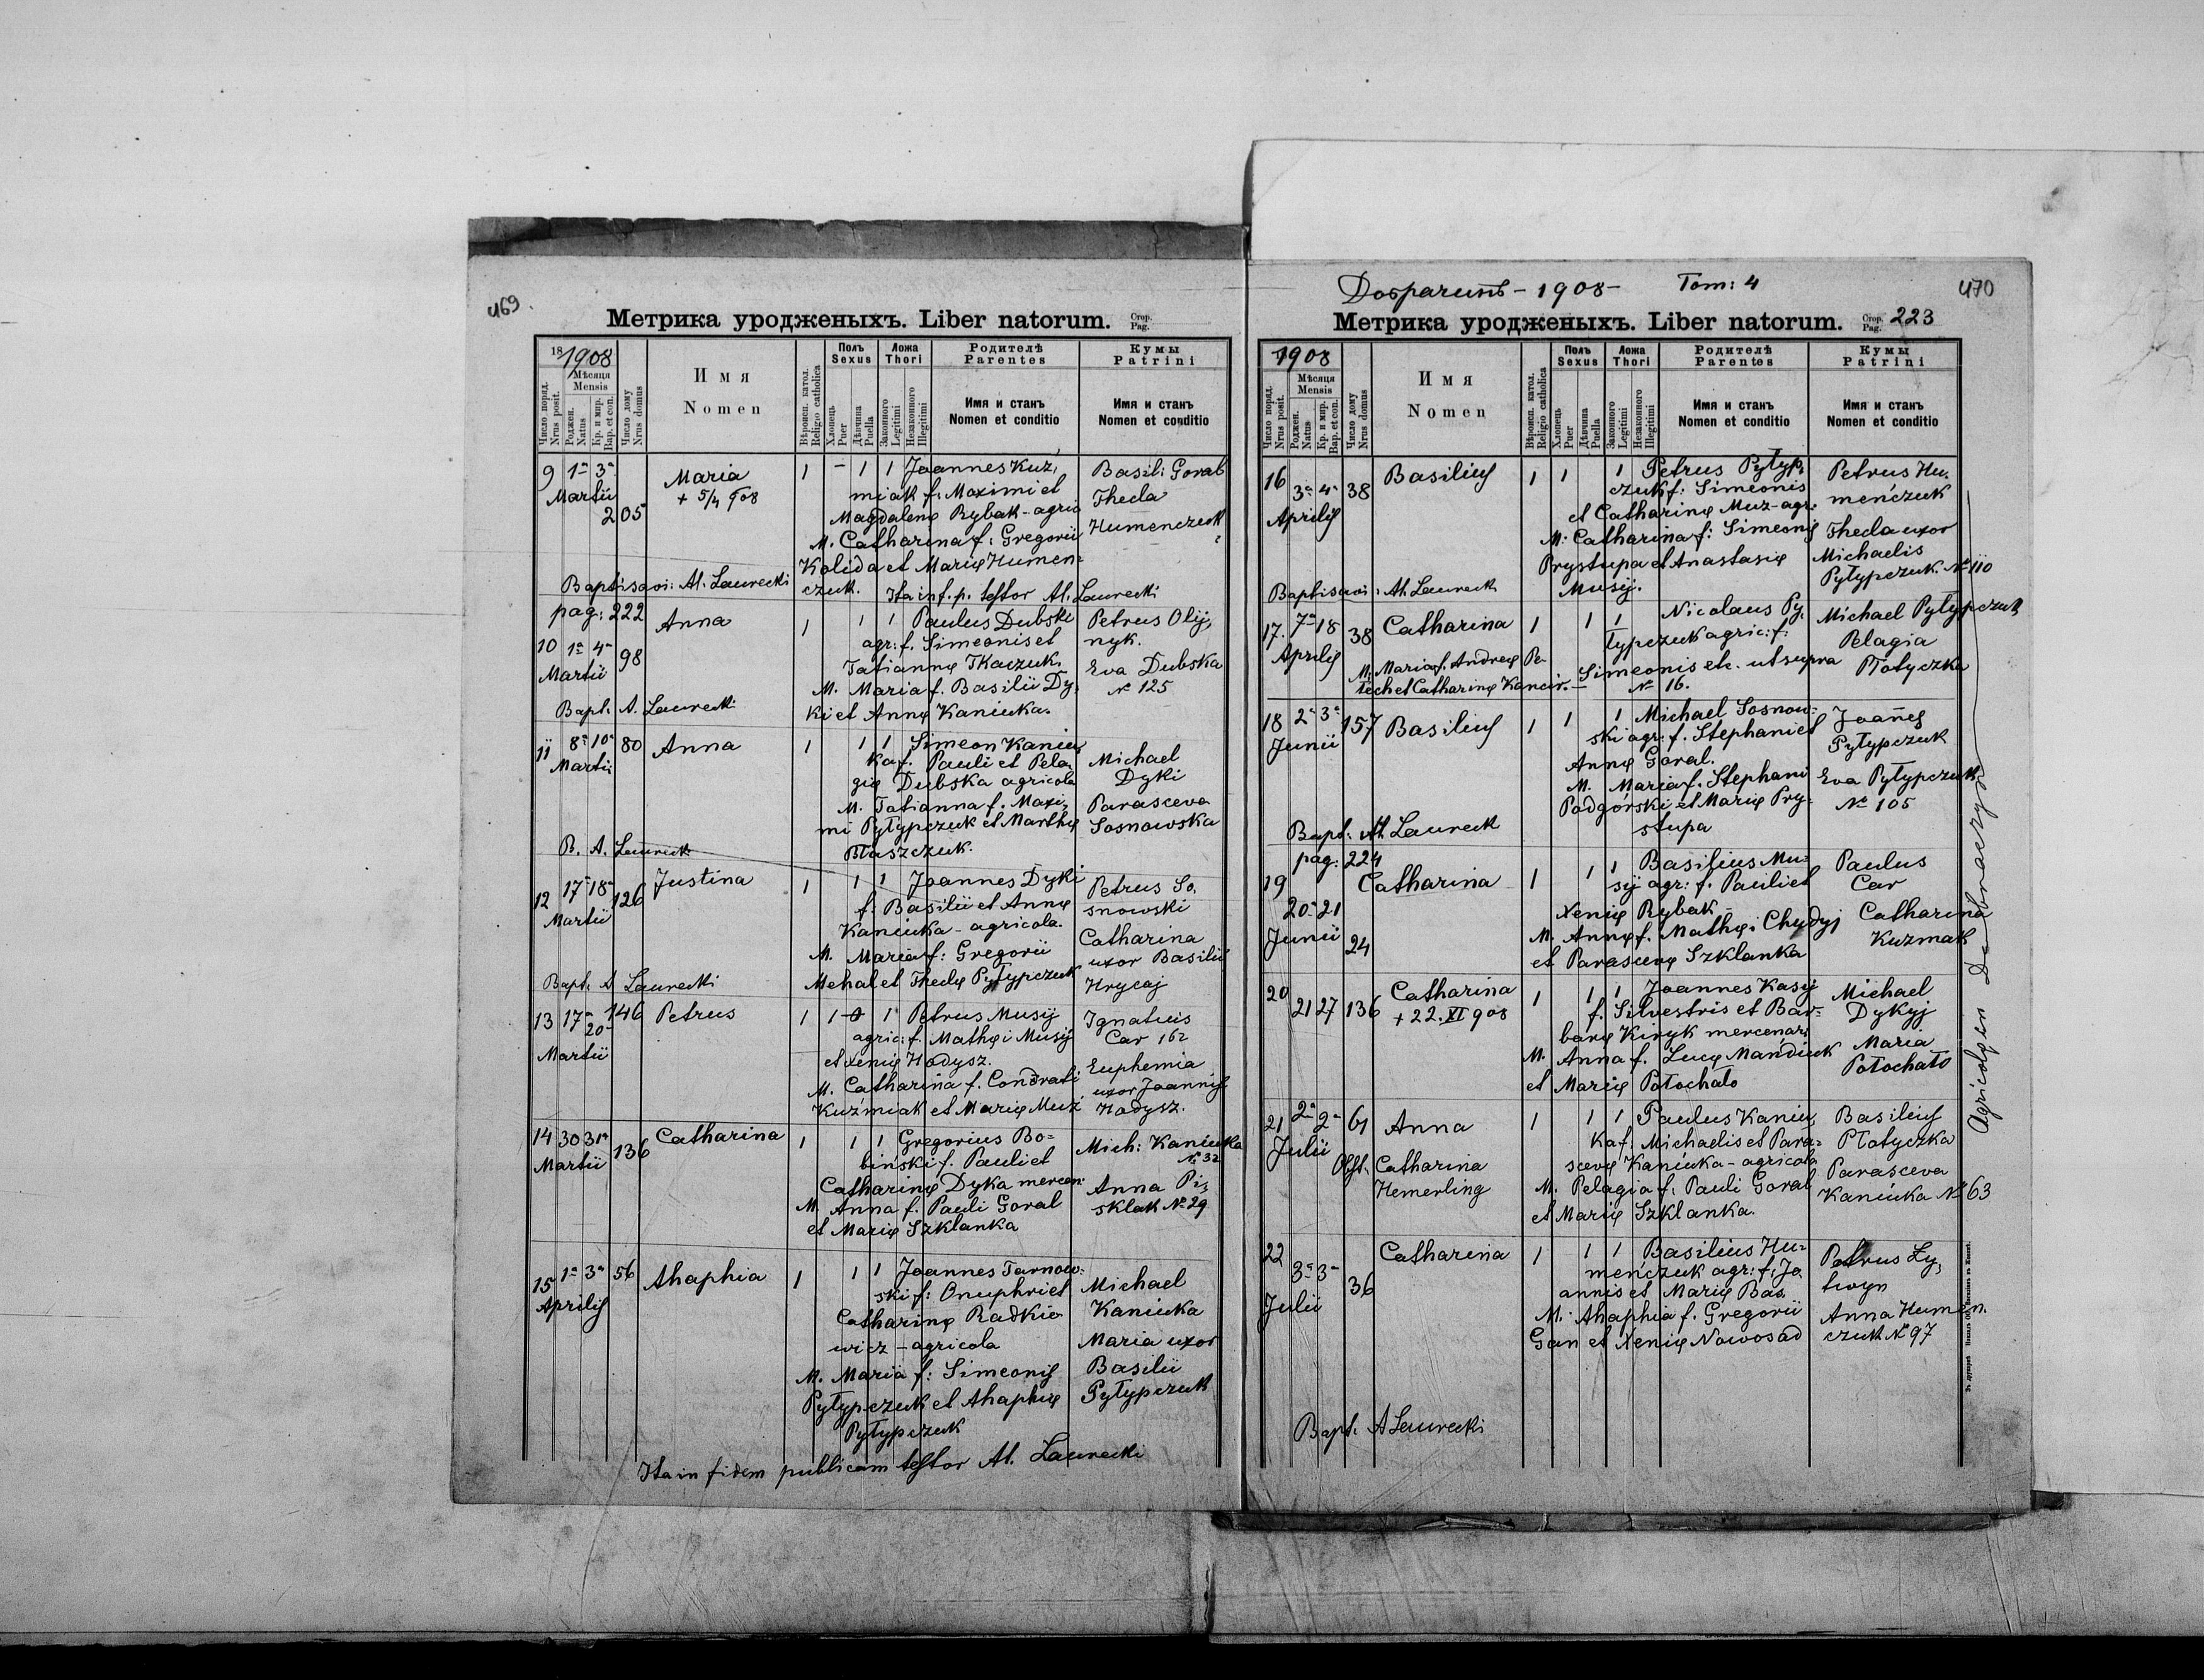 469.
Метрика уродженыхъ. Liber natorum. Стор. Pag.
18 1908
Мѣсяця
Mensis
Число поряд.
Nrus posit.
Роджен.
Natus
Кр. и мир.
Bap. et con.
Число дому
Nrus domus
Имя
Nomen
Вѣроисп. катол.
Religio catholica
Полъ
Sexus
Хлопець
Puer
Дѣвчина
Puella
Ложа
Thori
Законного
Legitimi
Незаконного
Illegitimi
Родителѣ
Parentes
Имя и станъ
Nomen et conditio
Кумы
Patrini
Имя и станъ
Nomen et conditio
9 1a 3a Martii 205
Maria
+ 5/4 908
1 – 1 1
Joannes Kuź,
miak f: Maximi et
Magdalenę Rybak - agric
M. Catharina f: Gregorii
Kolida et Marię Humen=
czuk.
Basili Goral
Thecla
Humenczuk
Baptisavi: Al. Laurecki
Ita in f. p. testor Al. Laurecki
pag: 222
10 1a 4a Martii 98
Anna
1 1 1
Paulus Dubski
agr: f. Simeonis et
Tatiannę Tkaczuk.
M. Maria f. Basilii Dy,
ki et Annę Kaniuka.
Petrus Olij,
nyk.
Eva Dubska
No 125
Bapt. A. Laurecki
11 8a 10a Martii 80
Anna
1 1 1
Simeon Kaniu,
ka f. Pauli et Pela,
gię Dubska agricola
M. Tatianna f. Maxi,
mi Pyłypczuk et Marthę
Błaszczuk.
Michael
Dyki
Parasceva
Sosnowska
B. A. Laurecki
12 17 18 Martii 126
Justina
1 1 1
Joannes Dyki
f. Basilii et Annę
Kaniuka - agricola.
M. Maria f: Gregorii
Mehal et Theclę Pyłypczuk
Petrus So.
snowski
Catharina
uxor Basilii
Hrycaj
Bapt. A Laurecki
13 17 20 Martii 146
Petrus
1 1 1
Petrus Musij
agric: f. Mathęi Musij
et Xenię Hadysz.
M. Catharina f. Condrati
Kuźmiak et Marię Muź
Ignatius
Car 162
Euphemia
uxor Joannis
Hadysz.
14 30 31a Martii 136
Catharina
1 1 1
Gregorius Bo=
biński f. Pauli et
Catharinę Dyka mercen:
M. Anna f. Pauli Goral
et Marię Szklanka
Mich: Kaniuka
No 32
Anna Pi,
sklak No 29
15 1a 3a Aprilis 56
Ahaphia
1 1 1
Joannes Tarnow:
ski f: Onuphri et
Catharinę Radkie
wicz - agricola
M. Maria f: Simeonis
Pyłypczuk et Ahaphię
Pyłypczuk
Michael
Kaniuka
Maria uxor
Basilii
Pyłypczuk
Ita in fidem publicam testor Al. Laurecki
470
Добрачинъ - 1908 - Tom: 4
Метрика уродженыхъ. Liber natorum. Стор. Pag. 223
1908
Мѣсяця
Mensis
Число поряд.
Nrus posit.
Роджен.
Natus
Кр. и мир.
Bap. et con.
Число дому
Nrus domus
Имя
Nomen
Вѣроисп. катол.
Religio catholica
Полъ
Sexus
Хлопець
Puer
Дѣвчина
Puella
Ложа
Thori
Законного
Legitimi
Незаконного
Illegitimi
Родителѣ
Parentes
Имя и станъ
Nomen et conditio
Кумы
Patrini
Имя и станъ
Nomen et conditio
16 3a 4a Aprilis 38
Basilius
1 1 1
Petrus Pyłyp,
czuk f: Simeonis
et Catharinę Muz - agr:
M: Catharina f: Simeonis
Prystupa et Anastasię
Musij.
Petrus Hu.
meńczuk
Thecla uxor
Michaelis
Pyłypczuk. No 110
Baptisavi: Al. Laurecki
17. 7a 18 Aprilis 38
Catharina
1 1 1
Nicolaus Py,
łypczuk agric: f:
Simeonis etc. ut supra
No 16.
M: Maria f. Andreę Pe-
tech et Catharinę Kancir. –
Michael Pyłypczuk
Pelagia
Płotyczka
18 2a 3a Junii 157
Basilius
1 1 1
Michael Sosnow=
ski agr: f. Stephani et
Annę Goral.
M. Maria f. Stephani
Podgórski et Marię Pry-
stupa
Joañes
Pyłypczuk
Eva Pyłypczuk
No 105
Bapt. Al. Laurecki
pag: 224
19 20 21 Junii 24
Catharina
1 1 1
Basilius Mu=
sij agr: f. Pauli et
Xenię Rybak -
M. Annę f. Mathęi Chydyj
et Parascevę Szklanka
Paulus
Car
Catharina
Kuzmak
20 21 27 136
Catharina
+ 22. XI 908
1 1 1
Joannes Kasij
f. Silvestris et Bar=
barę Kiryk mercenar,
M. Anna f. Lucę Mandiuk
et Marię Połochało
Michael
Dykyj
Maria
Połochało
21 2a 2a Julii 61
Anna
Obst. Catharina
Hemerling
1 1 1
Paulus Kaniu,
ka f. Michaelis et Para=
scevę Kaniuka - agricola
M. Pelagia f. Pauli Goral
et Marię Szklanka.
Basilius
Płotyczka
Parasceva
Kaniuka No 63
22 3a 3a Julii 36
Catharina
1 1 1
Basilius Hu=
meńczuk agr: f: Jo
annis et Marię Bas.
M: Ahaphia f. Gregorii
Gan et Xenię Nowosad
Petrus Ły,
twyn
Anna Humen.
czuk No 97
Bapt. A Laurecki